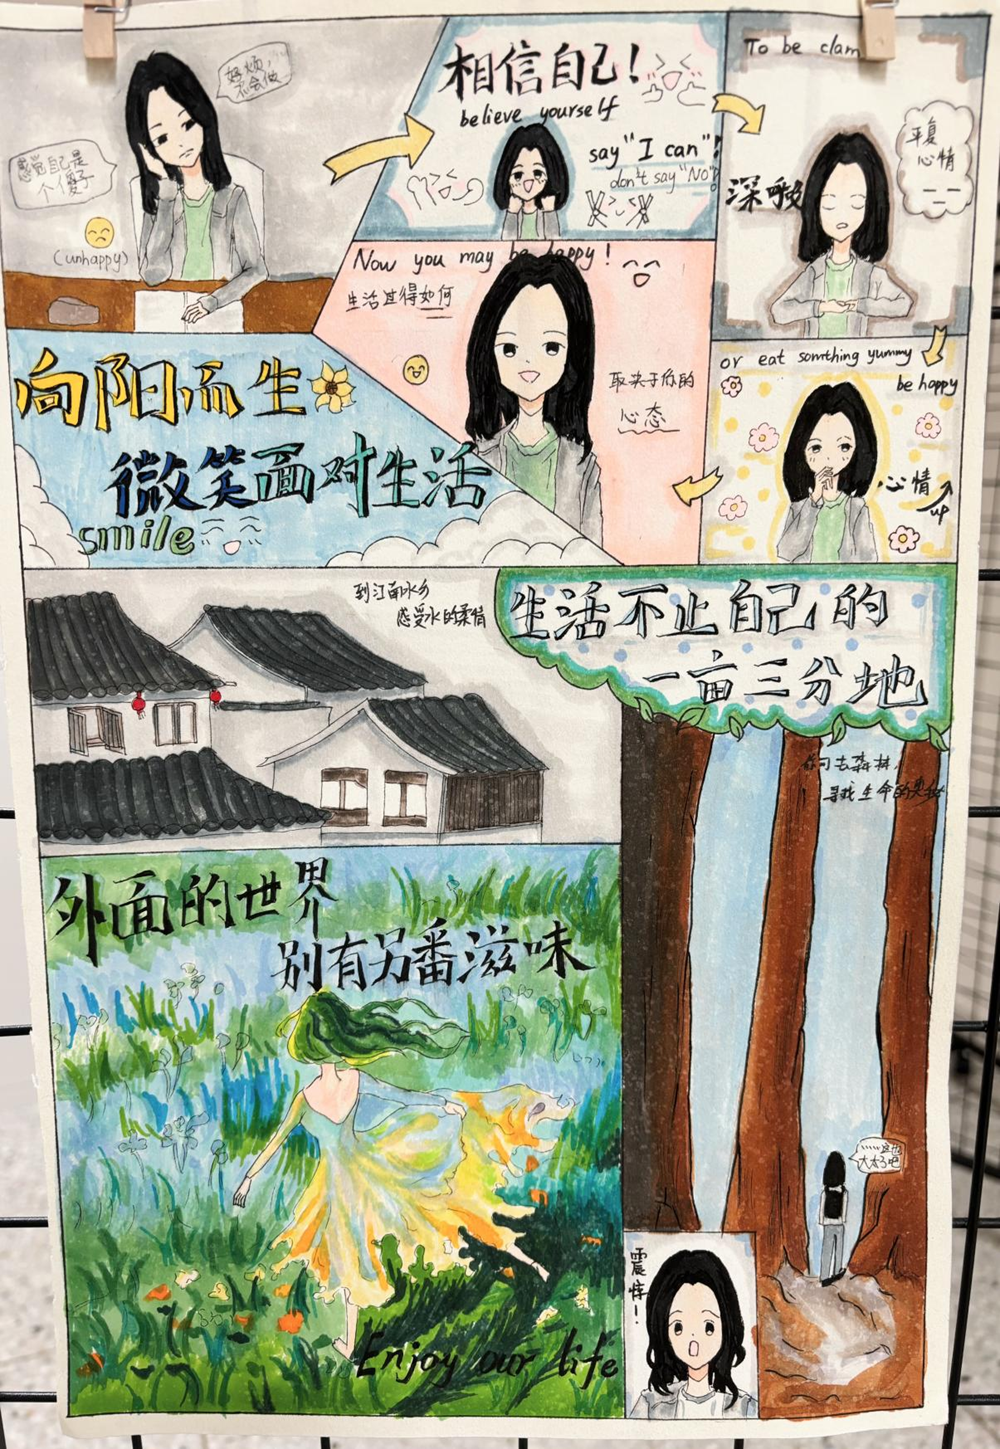 好烦，
不会做
感觉自己是
个傻子
(unhappy)
相信自己！
believe yourself
say "I can"!
don't say "No"!
To be clam
平复
心情
深呼吸
Now you may be happy!
生活过得如何
取决于你的
心态
or eat somthing yummy
be happy
心情
up
向阳而生
微笑面对生活
smile
到江南水乡
感受水的柔情
生活不止自己的
一亩三分地
你可去森林，
寻找生命的奥秘
外面的世界
别有另番滋味
这也
太大了吧
震惊！
Enjoy our life